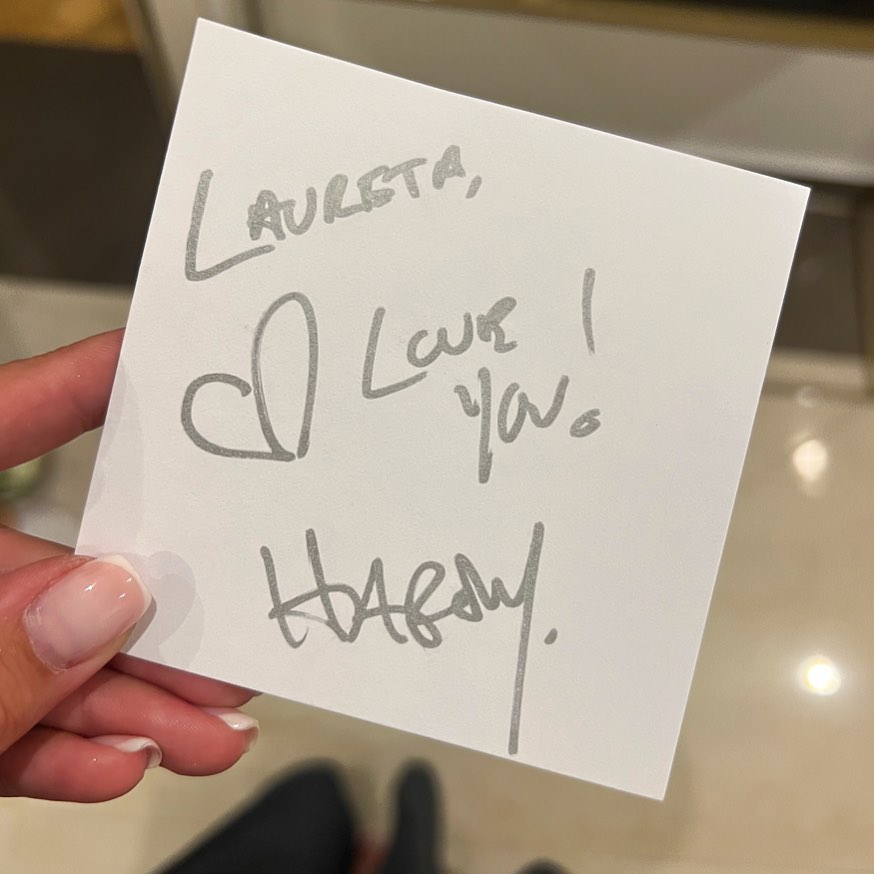 LAURETA,
LOVE !
YOU.
HARDY.